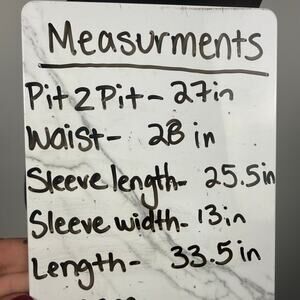 Measurments
Pit 2 Pit- 27in
Waist- 28 in
Sleeve length- 25.5in
Sleeve width- 13in
Length- 33.5in